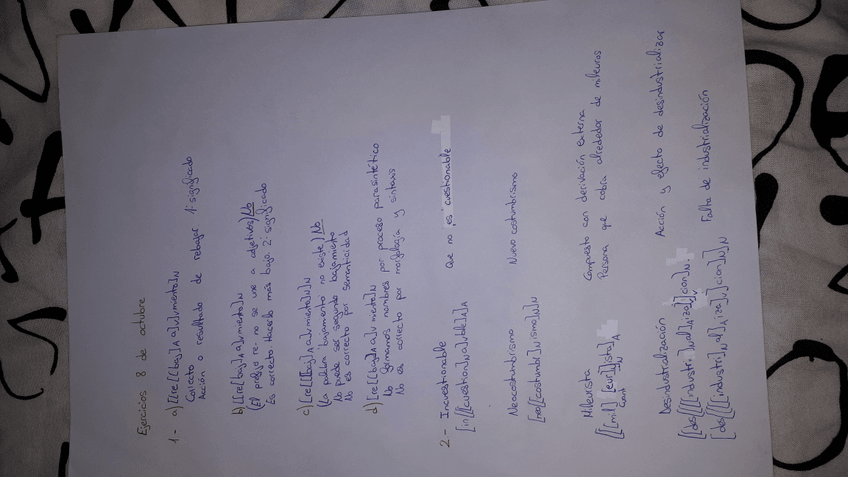 Ejercicios 8 de octubre
1 - a) [[re[[baj]A a]V]V miento]N
Correcto
Acción o resultado de rebajar 1er significado
b) [[re[baj]A a]V miento]N
(El prefijo re- no se une a adjetivos) No
Es correcto Hacerlo más bajo 2º significado
c) [re[[[baj]A a]V miento]N]N
(La palabra bajamiento no existe) No
No puede ser segundo bajamiento
No es correcto por semanticidad
d) [re[[baj]A a]V miento]N
No formamos nombres por proceso parasintético
No es correcto por morfología y sintaxis
2 - Incuestionable Que no es cuestionable
[in[[[cuestion]N a]V ble]A]A
Neocostumbrismo Nuevo costumbrismo
[neo[[costumbr]N ismo]N]N
Mileurista Compuesto con derivación externa
Persona que cobra alrededor de mileuros
[[[mil] [eur]N]ista]A
Desindustrialización Acción y efecto de desindustrializar
[[des[[[industri]N al]A iza]V]V ción]N
[des[[[[industri]N al]A iza]V ción]N]N Falta de industrialización